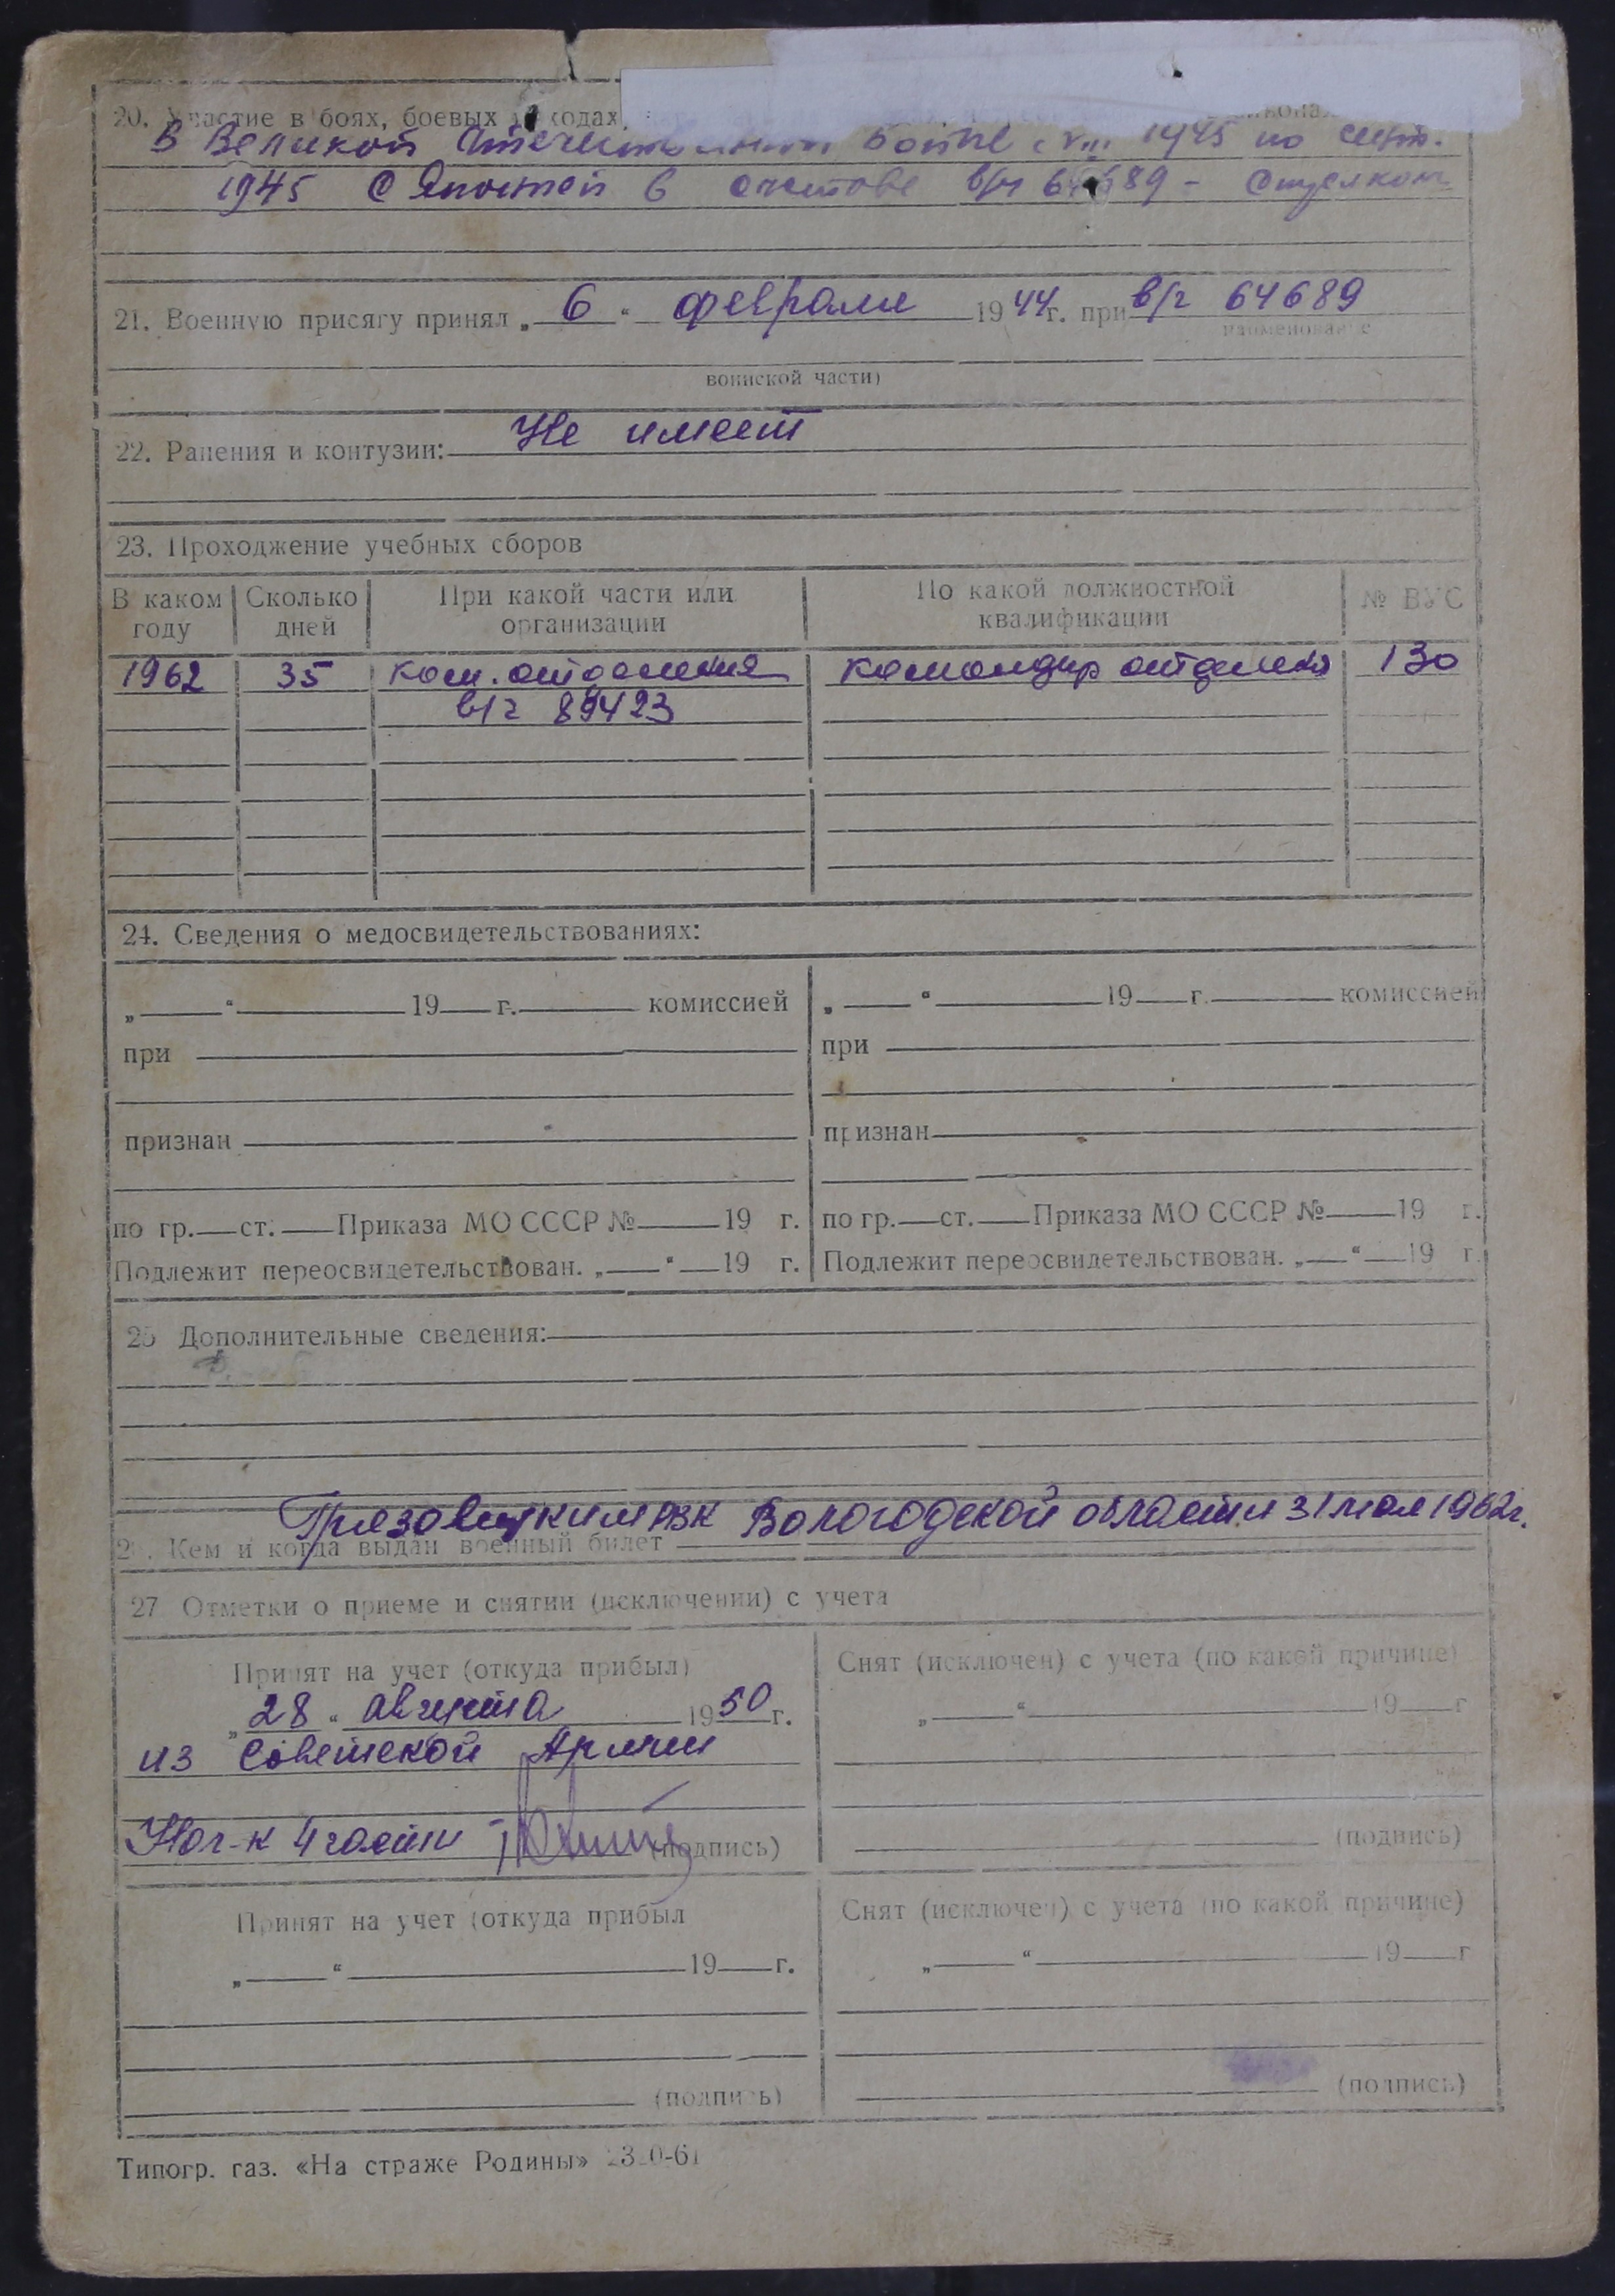 20. Участие в боях, боевых походах,
В Великой Отечественной войне с VIII 1945 по сент.
1945 с Японией в составе в/ч 64689 - Стрелком
21. Военную присягу принял „6“ февраля 1944г. при в/ч 64689
наименование
воинской части)
22. Ранения и контузии: Не имеет
23. Прохождение учебных сборов
В каком году Сколько дней При какой части или организации По какой должностной квалификации № ВУС
1962 35 ком. отделения командир отделения 130
в/ч 89423
24. Сведения о медосвидетельствованиях:
„ “ 19 г. комиссией „ “ 19 г. комиссией
при при
признан признан
по гр. ст. Приказа МО СССР № 19 г. по гр. ст. Приказа МО СССР № 19 г.
Подлежит переосвидетельствован. „ “ 19 г. Подлежит переосвидетельствован. „ “ 19 г.
25 Дополнительные сведения:
Грязовецким РВК Вологодской области 31 мая 1962г.
26. Кем и когда выдан военный билет
27 Отметки о приеме и снятии (исключении) с учета
Принят на учет (откуда прибыл) Снят (исключен) с учета (по какой причине)
„28“ августа 1950г. „ “ 19 г
из Советской Армии
Нач-к 4 части (подпись) (подпись)
Принят на учет (откуда прибыл Снят (исключен) с учета (по какой причине)
„ “ 19 г. „ “ 19 г
(подпись) (подпись)
Типогр. газ. «На страже Родины»